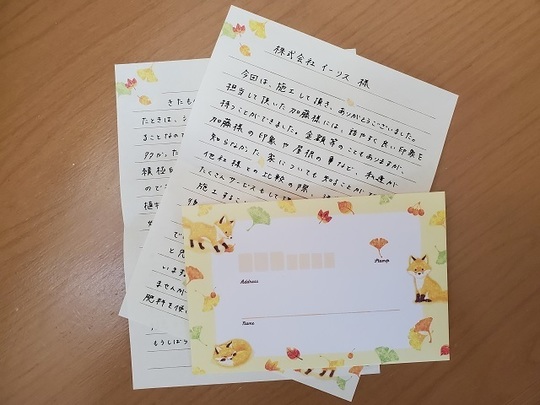 株式会社 イーリス 様
今回は、施工して頂き、ありがとうございました。
担当して頂いた加藤様には、話やすく良い印象を
持つことができました。金額等のこともありますが、
加藤様の印象や屋根の事など、私達が
知らなかった家についても知ることが
他社様との比較の際
たくさんサービスもして
施工するこ
きたも
たときは、
ることなの
タクが、た
積極
ので
植
で
と
います。
ませんが
肥料を使
もうしばら
Stamp
Address
Name